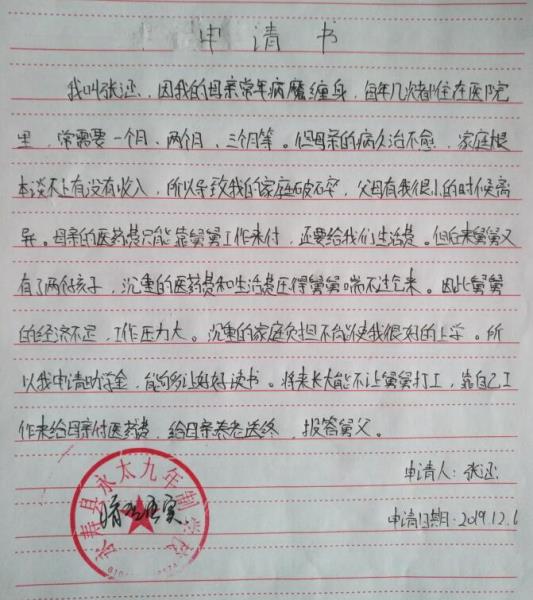 申请书
我叫张还，因我的母亲常年病魔缠身，每年几次都住在医院
里，常需要一个月、两个月、三个月等。但母亲的病久治不愈，家庭根
本谈不上有没有收入，所以导致我的家庭破碎，父母在我很小的时候离
异。母亲的医药费只能靠舅舅工作来付，还要给我们生活费。但后来舅舅又
有了两个孩子，沉重的医药费和生活费压得舅舅喘不过气来。因此舅舅
的经济不足，工作压力大。沉重的家庭负担不能使我很好的上学。所
以我申请助学金，能够让好好读书。将来长大能不让舅舅打工，靠自己工
作来给母亲付医药费，给母亲养老送终，报答舅父。
申请人：张还
申请日期：2019.12.6
永寿县永太九年制学校
情况属实